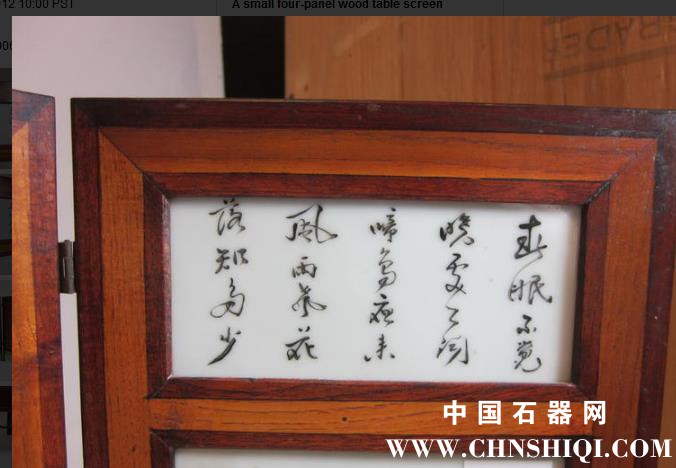 12 10:00 PST
A small four-panel wood table screen
春眠不覺
曉處々聞
啼鳥夜来
風雨聲花
落知多少
中国石器网
WWW.CHNSHIQI.COM